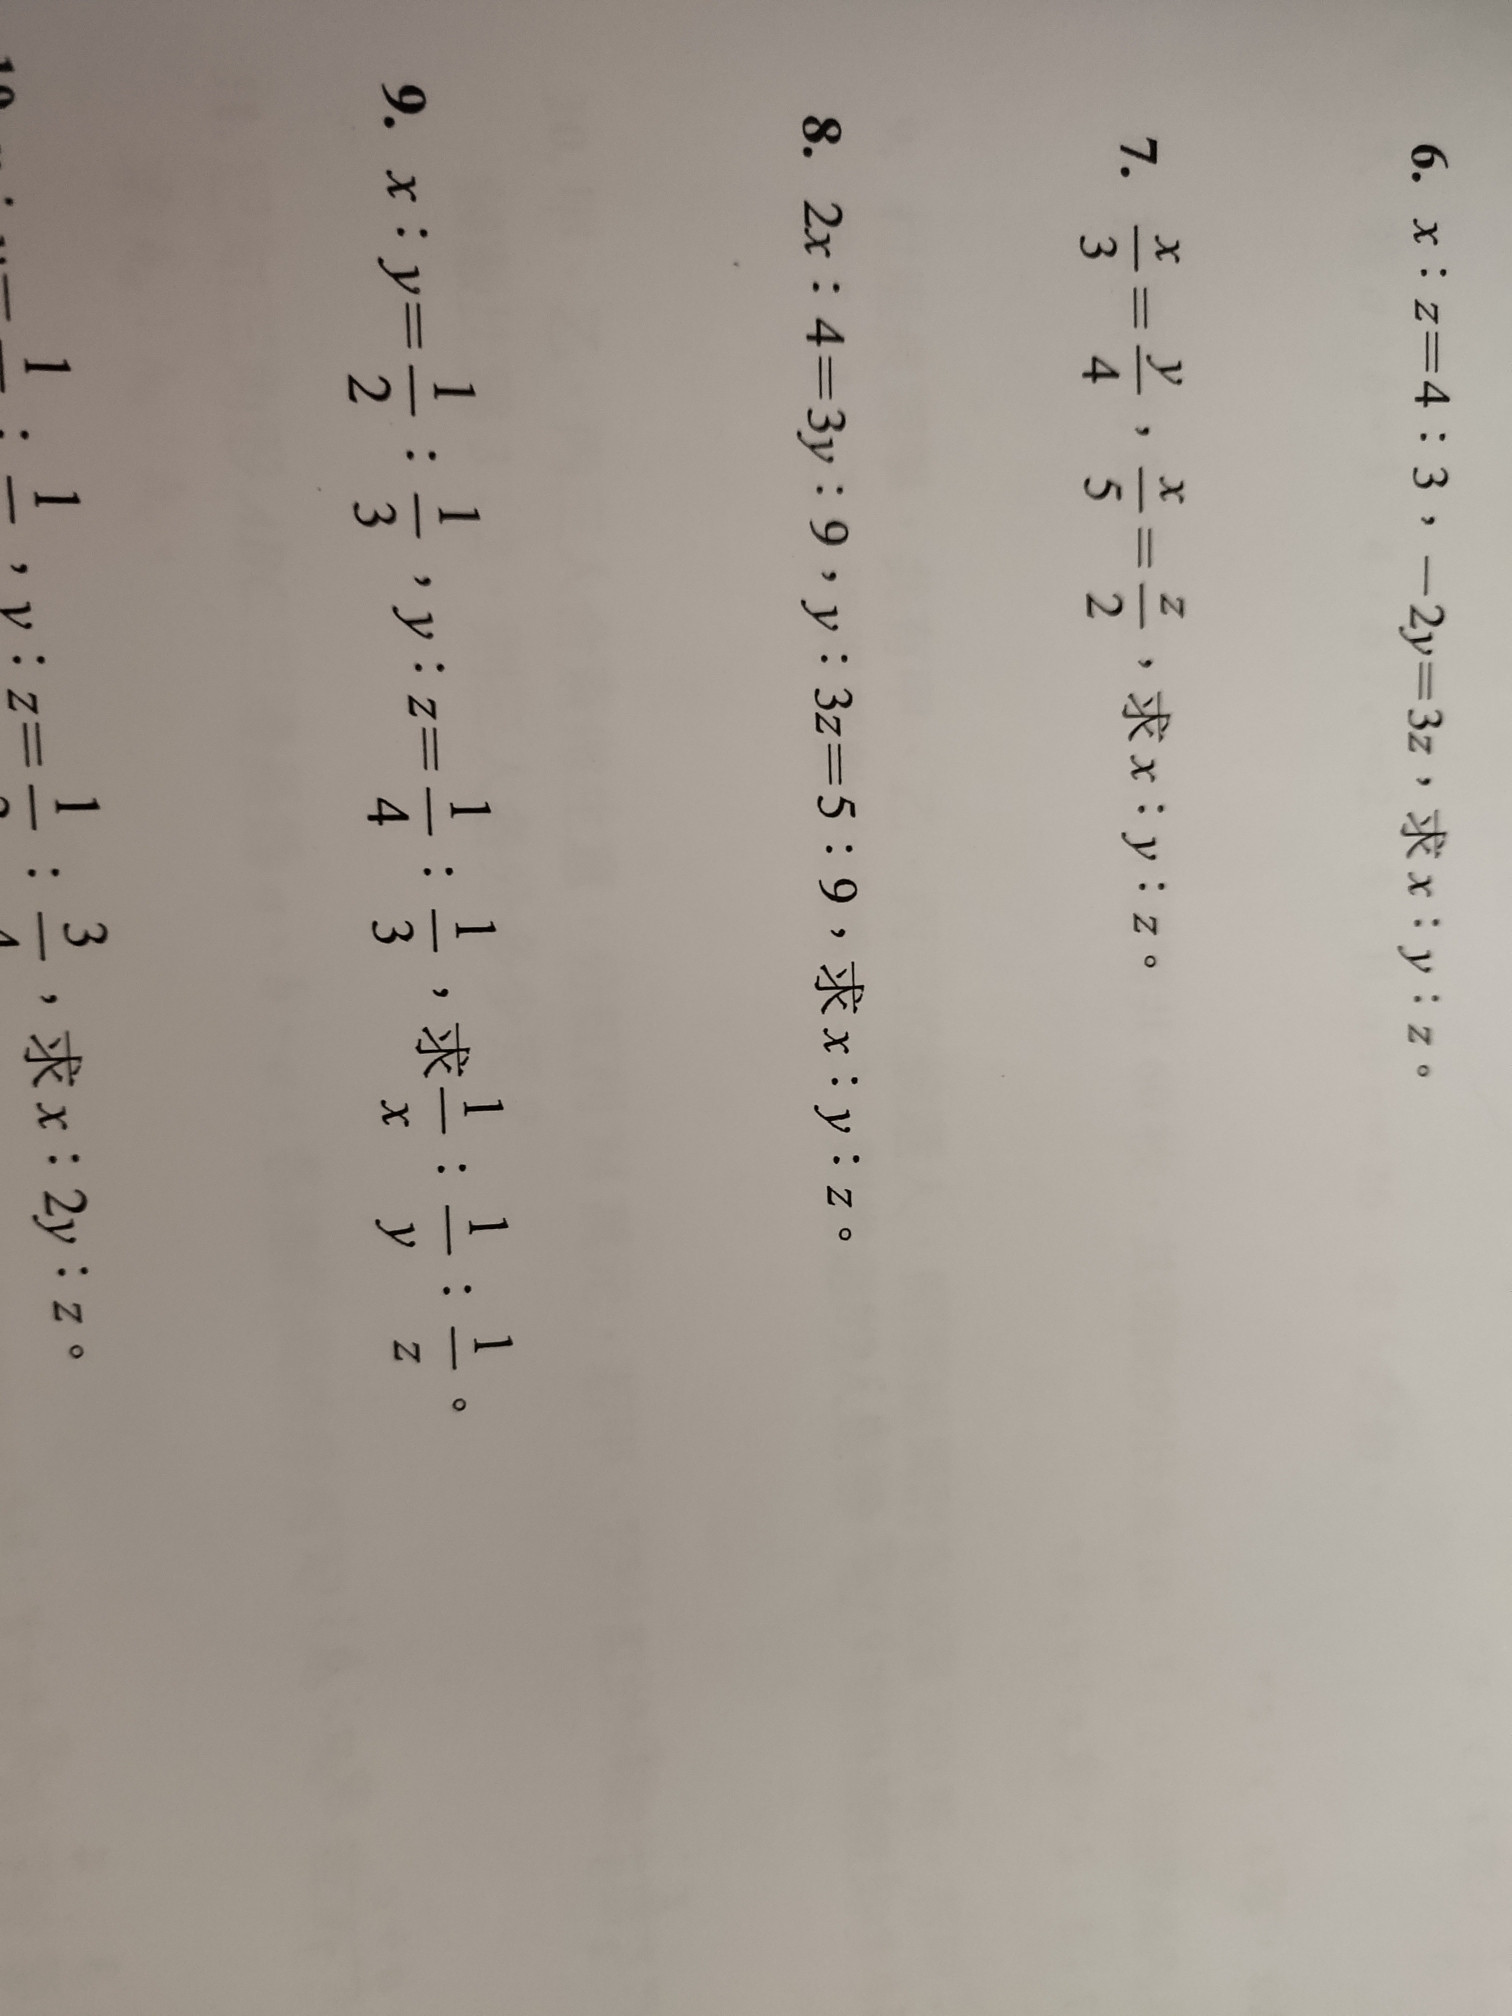 6. x：z=4：3，-2y=3z，求x：y：z。
7. x/3=y/4，x/5=z/2，求x：y：z。
8. 2x：4=3y：9，y：3z=5：9，求x：y：z。
9. x：y=1/2：1/3，y：z=1/4：1/3，求1/x：1/y：1/z。
，y：z= ，求x：2y：z。